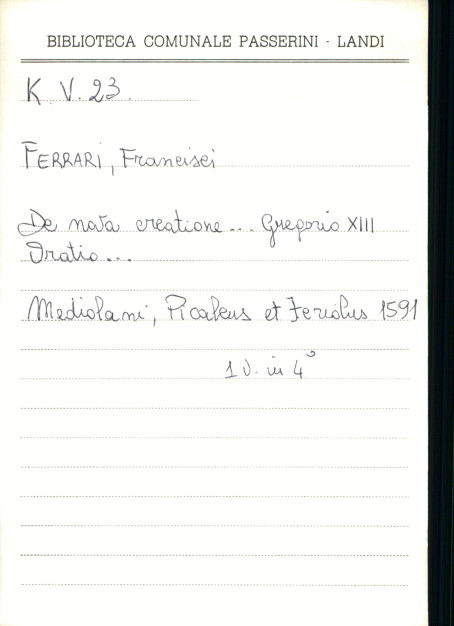 BIBLIOTECA COMUNALE PASSERINI - LANDI
K. V. 23.
FERRARI, Francisci
De nova creatione... Gregorio XIII
Oratio...
Mediolani, Picaleus et Feriolus 1591
1 v. in 4°